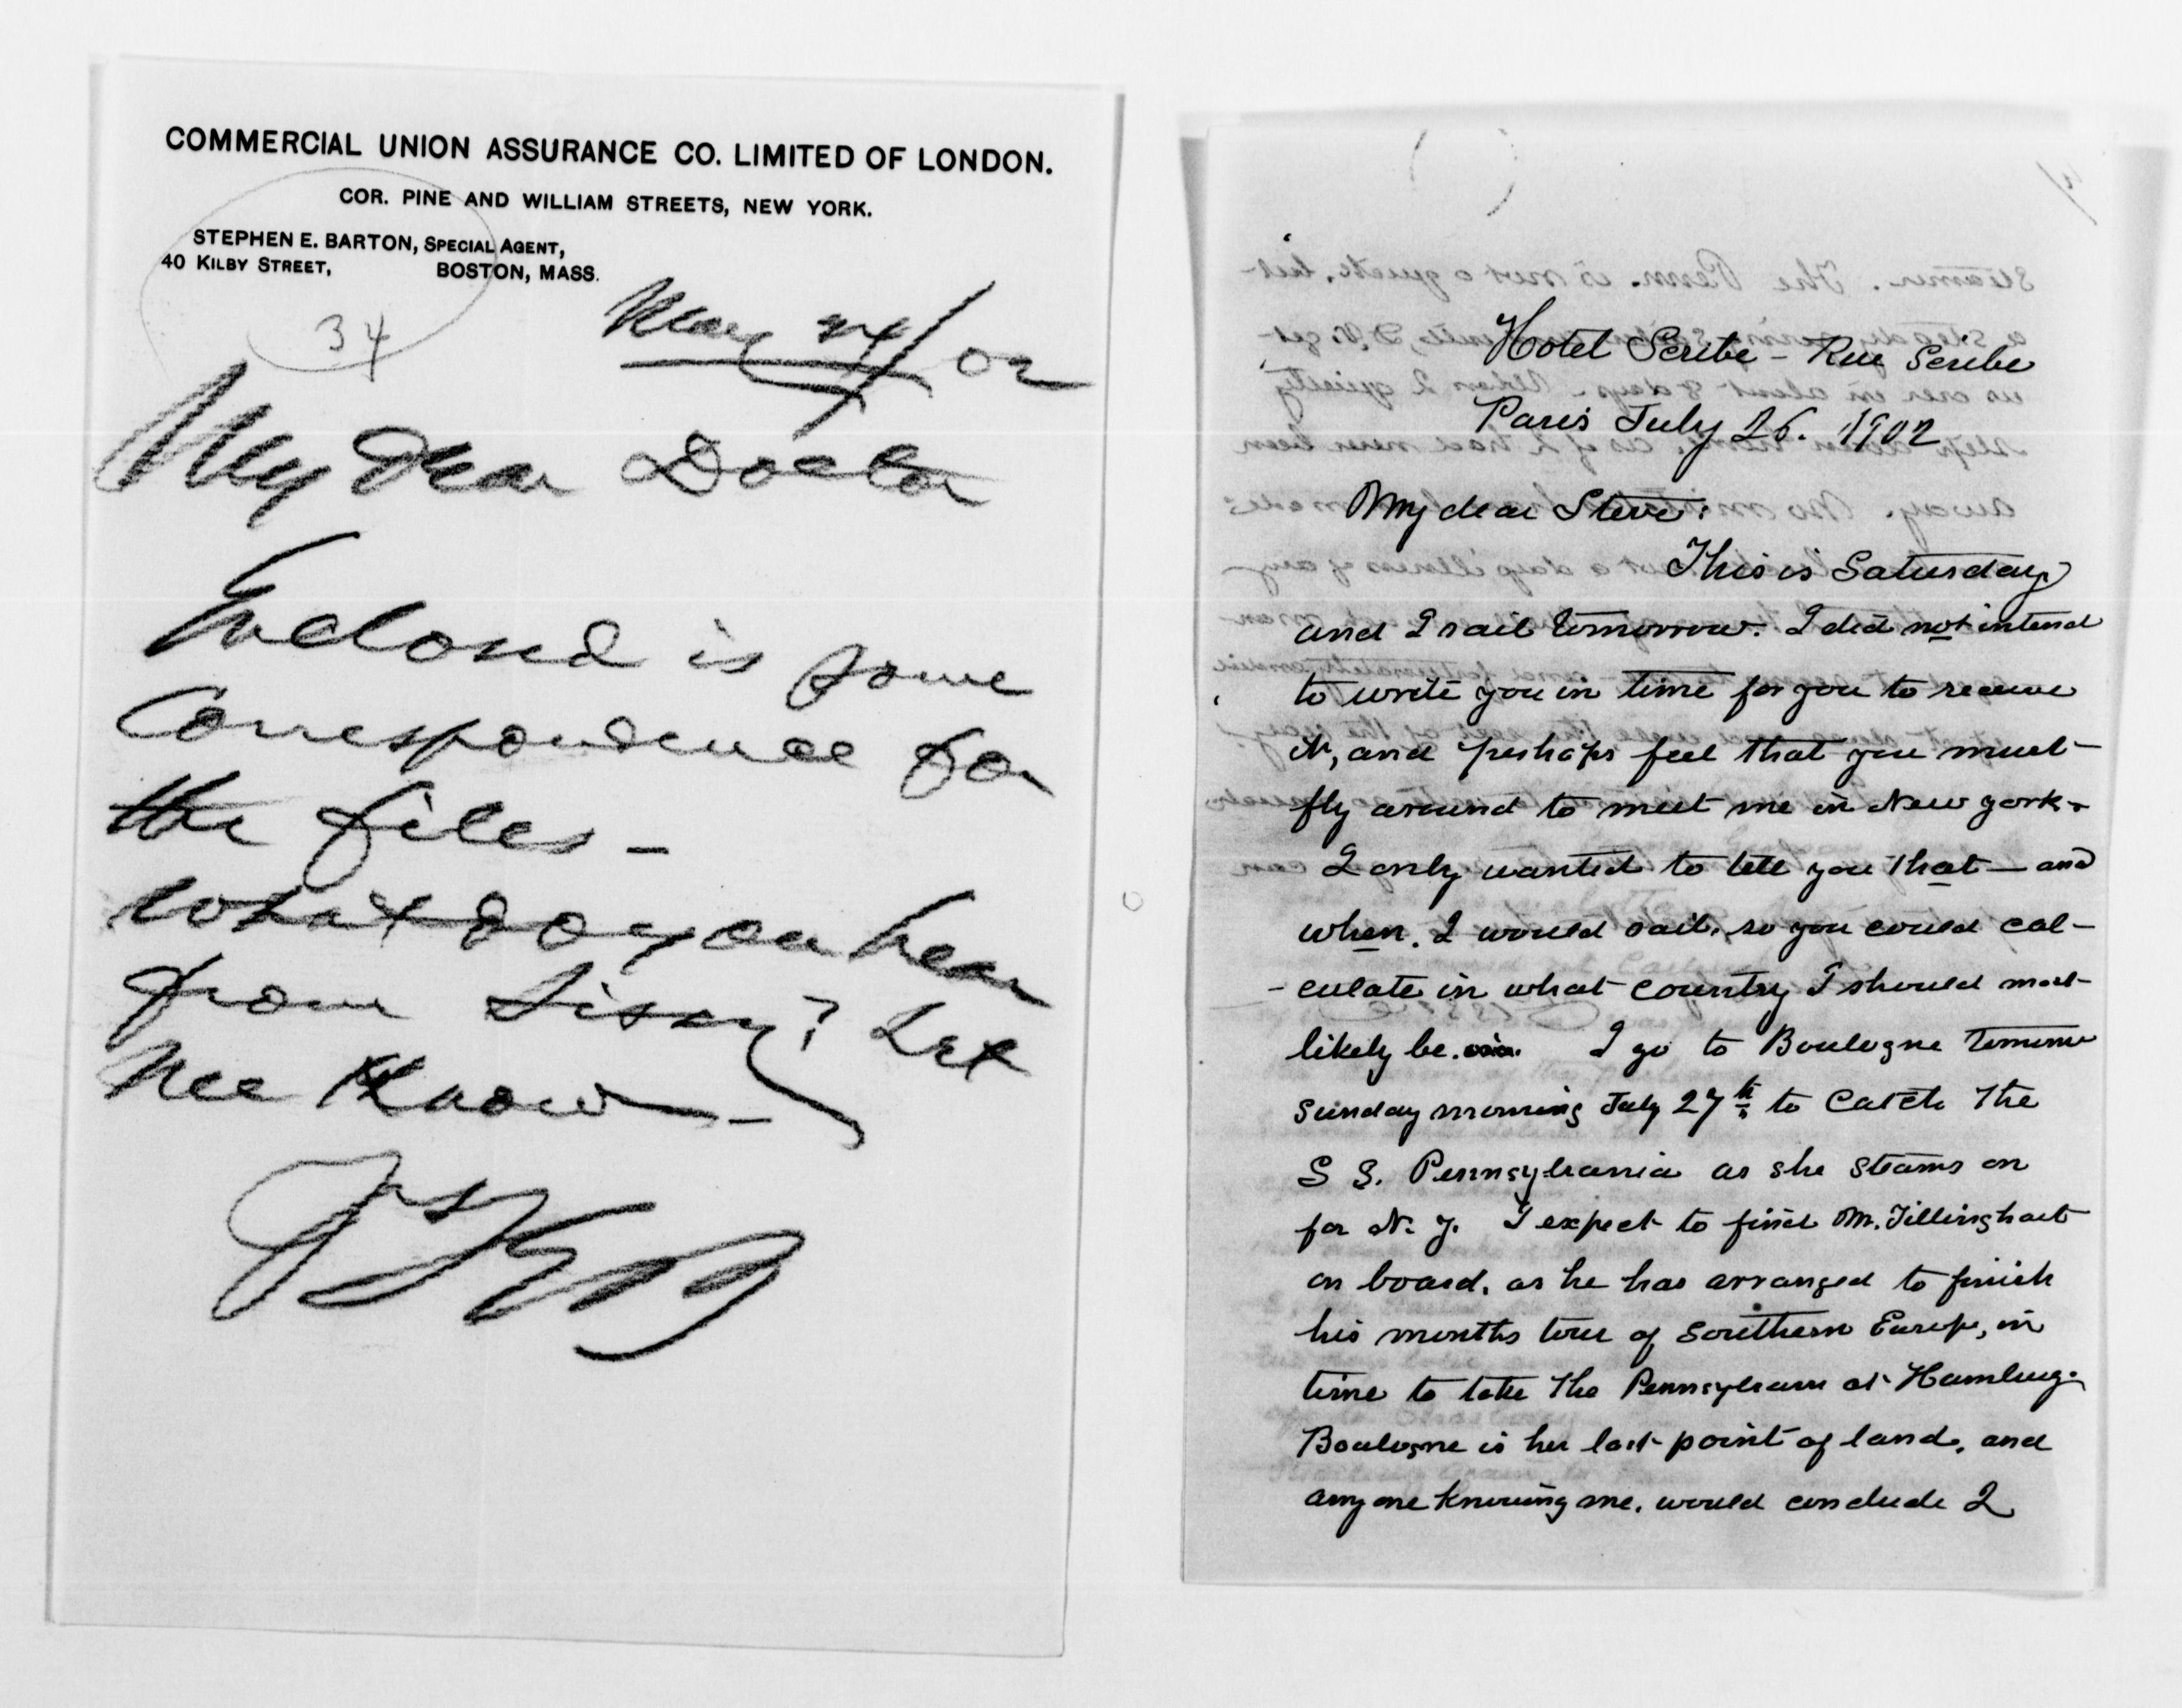 COMMERCIAL UNION ASSURANCE CO. LIMITED OF LONDON.
COR. PINE AND WILLIAM STREETS, NEW YORK.
STEPHEN E. BARTON, SPECIAL AGENT,
40 KILBY STREET, BOSTON, MASS.
34
May 24/02
My Dear Doctor
Enclosed is some
Correspondence for
the files -
What do you hear
from Sissy? Let
me know -
Hotel Scribe - Rue Scribe
Paris July 26. 1902
My dear Steve:
This is Saturday
and I sail tomorrow. I did not intend
to write you in time for you to receive
it, and perhaps feel that you must
fly around to meet me in New York.
I only wanted to tell you that - and
when. I would sail, so you could cal-
-culate in what country I should most
likely be. I go to Boulogne tomorrow
Sunday morning July 27th to catch the
S S. Pennsylvania as she steams on
for N. Y. I expect to find Mr. Tillinghast
on board, as he has arranged to finish
his months tour of Southern Europe, in
time to take the Pennsylvania at Hamburg.
Boulogne is her last point of land, and
any one knowing me, would conclude I